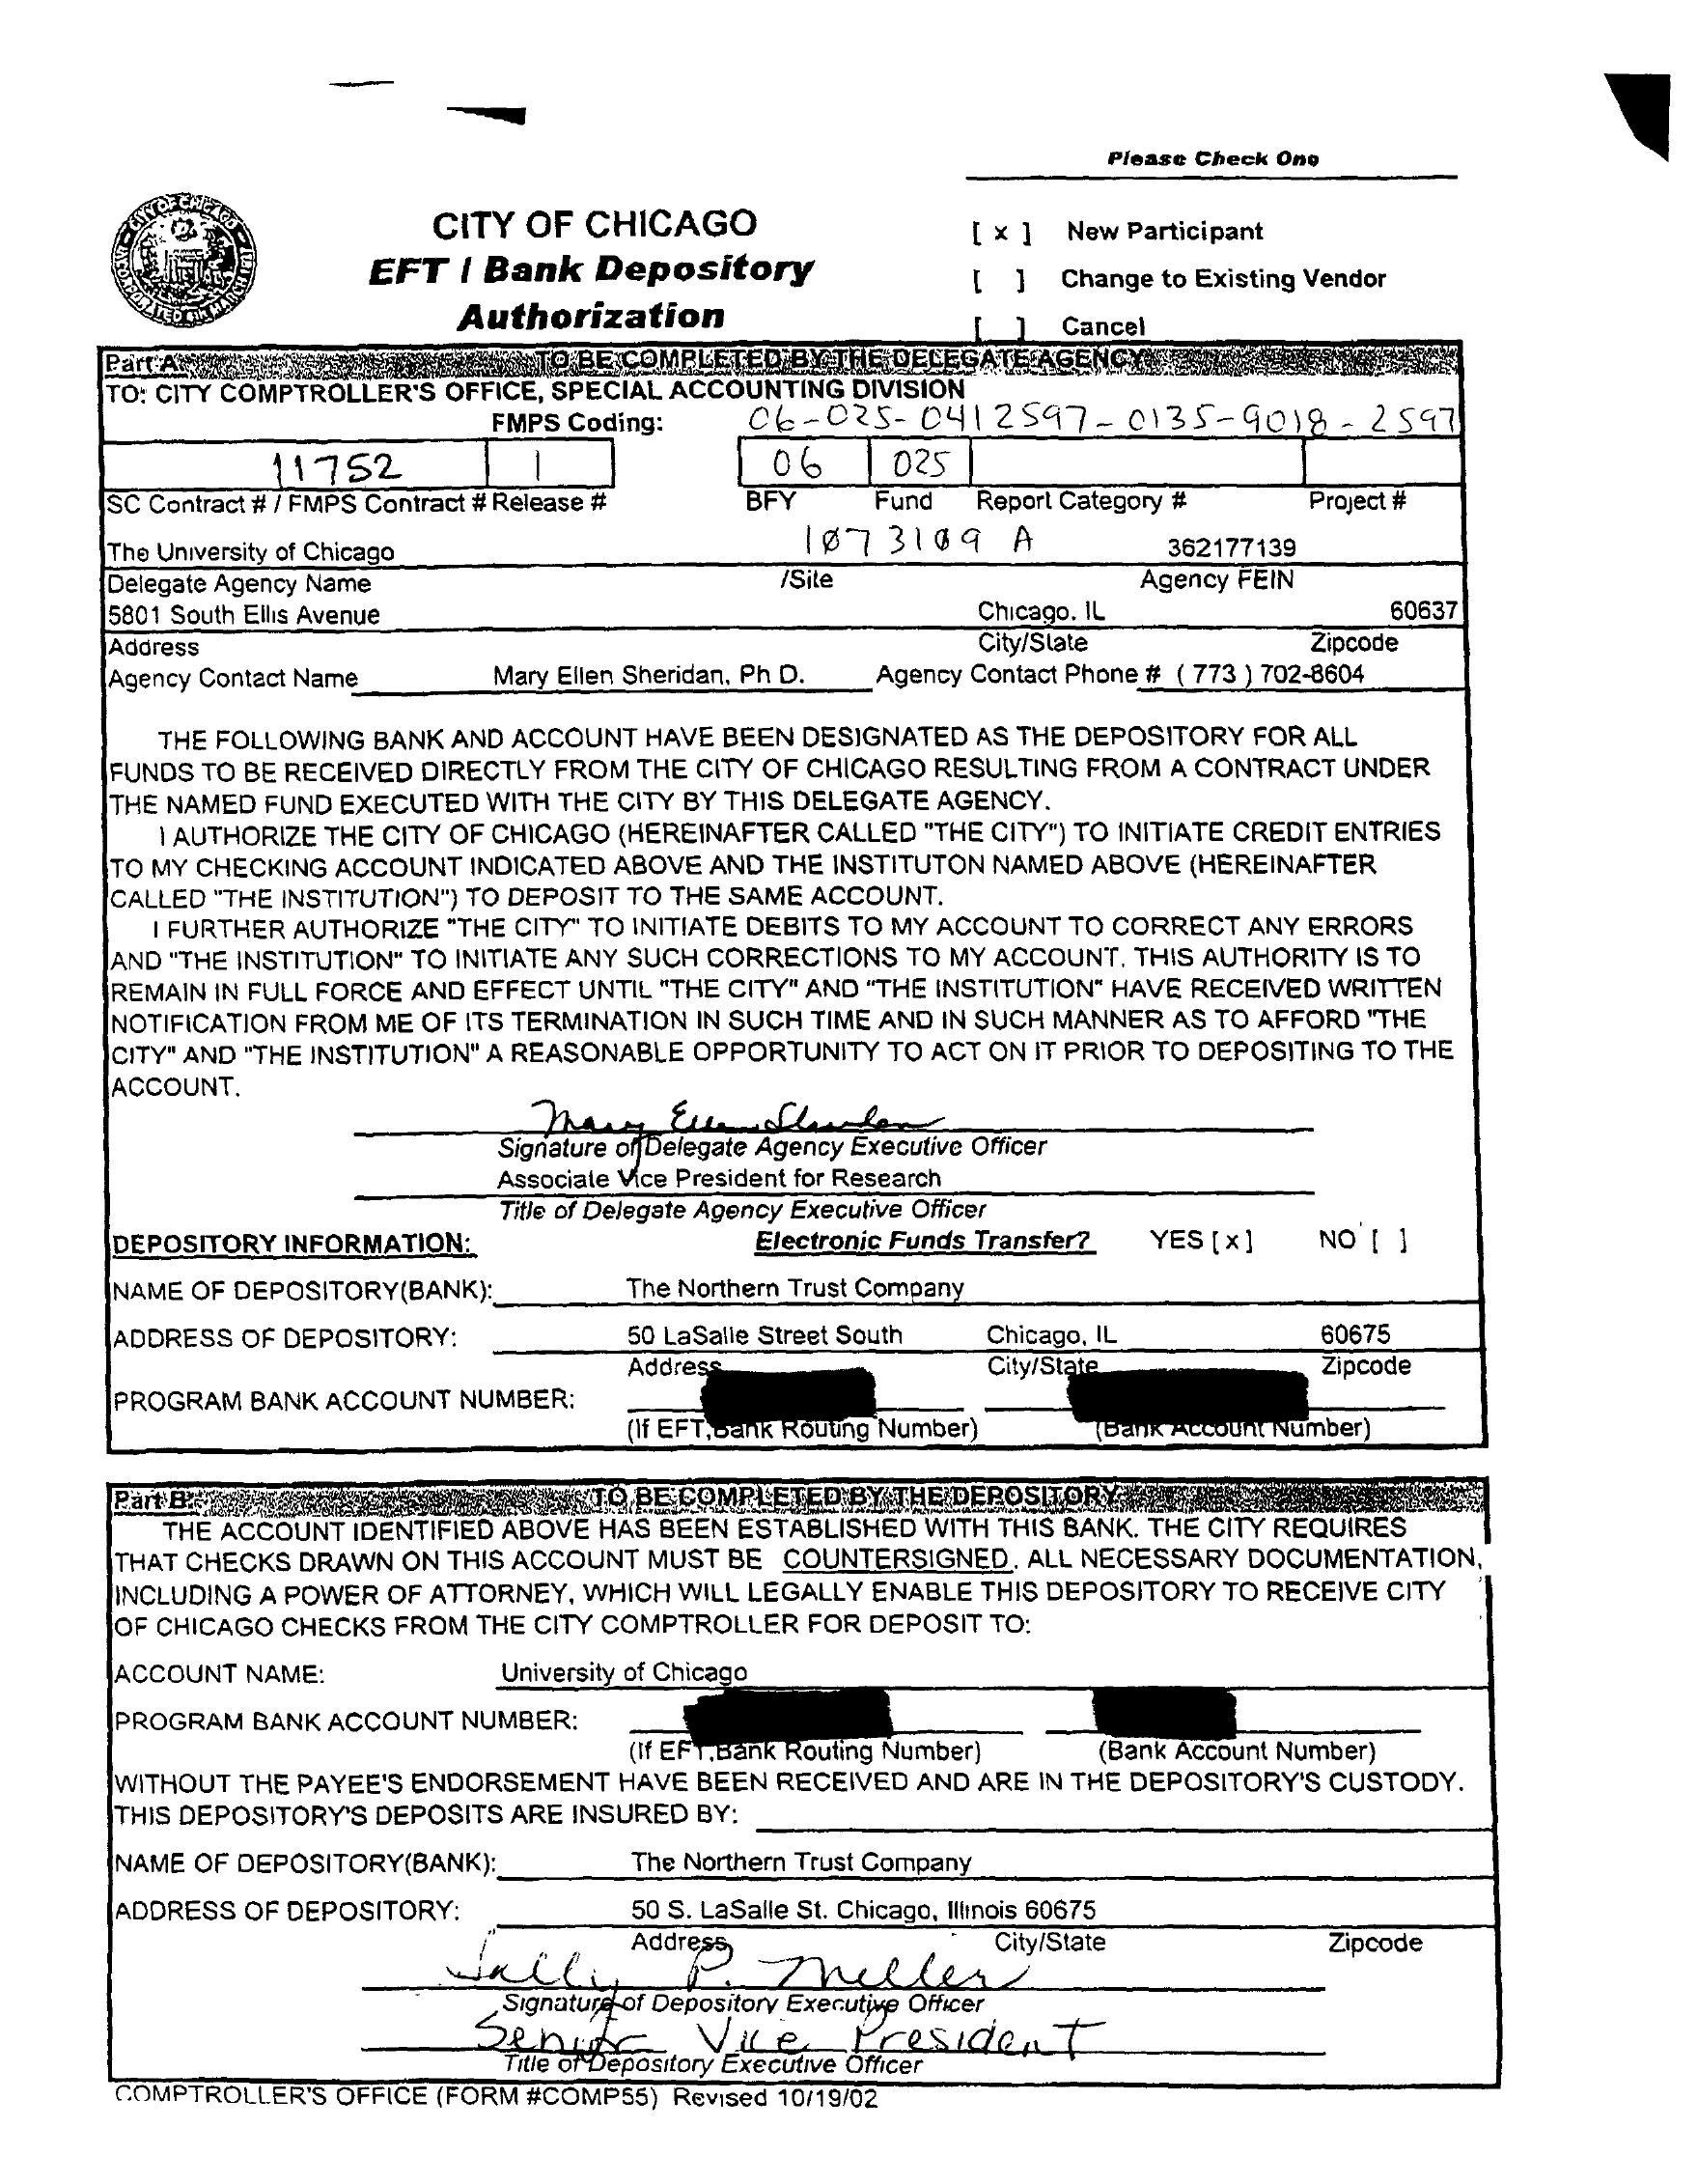 Please Check One
CITY OF CHICAGO
EFT / Bank Depository
Authorization
[ x ] New Participant
[ ] Change to Existing Vendor
[ ] Cancel
Part A TO BE COMPLETED BY THE DELEGATE AGENCY
TO: CITY COMPTROLLER'S OFFICE, SPECIAL ACCOUNTING DIVISION
FMPS Coding: 06-025-0412597-0135-9018-2597
11752 1 06 025
SC Contract # / FMPS Contract # Release # BFY Fund Report Category # Project #
The University of Chicago 1073109 A 362177139
Delegate Agency Name /Site Agency FEIN
5801 South Ellis Avenue Chicago, IL 60637
Address City/State Zipcode
Agency Contact Name Mary Ellen Sheridan, Ph D. Agency Contact Phone # ( 773 ) 702-8604
THE FOLLOWING BANK AND ACCOUNT HAVE BEEN DESIGNATED AS THE DEPOSITORY FOR ALL
FUNDS TO BE RECEIVED DIRECTLY FROM THE CITY OF CHICAGO RESULTING FROM A CONTRACT UNDER
THE NAMED FUND EXECUTED WITH THE CITY BY THIS DELEGATE AGENCY.
I AUTHORIZE THE CITY OF CHICAGO (HEREINAFTER CALLED "THE CITY") TO INITIATE CREDIT ENTRIES
TO MY CHECKING ACCOUNT INDICATED ABOVE AND THE INSTITUTON NAMED ABOVE (HEREINAFTER
CALLED "THE INSTITUTION") TO DEPOSIT TO THE SAME ACCOUNT.
I FURTHER AUTHORIZE "THE CITY" TO INITIATE DEBITS TO MY ACCOUNT TO CORRECT ANY ERRORS
AND "THE INSTITUTION" TO INITIATE ANY SUCH CORRECTIONS TO MY ACCOUNT. THIS AUTHORITY IS TO
REMAIN IN FULL FORCE AND EFFECT UNTIL "THE CITY" AND "THE INSTITUTION" HAVE RECEIVED WRITTEN
NOTIFICATION FROM ME OF ITS TERMINATION IN SUCH TIME AND IN SUCH MANNER AS TO AFFORD "THE
CITY" AND "THE INSTITUTION" A REASONABLE OPPORTUNITY TO ACT ON IT PRIOR TO DEPOSITING TO THE
ACCOUNT.
Mary Ellen Sheridan
Signature of Delegate Agency Executive Officer
Associate Vice President for Research
Title of Delegate Agency Executive Officer
DEPOSITORY INFORMATION: Electronic Funds Transfer? YES [ x ] NO [ ]
NAME OF DEPOSITORY(BANK): The Northern Trust Company
ADDRESS OF DEPOSITORY: 50 LaSalle Street South Chicago, IL 60675
Address City/State Zipcode
PROGRAM BANK ACCOUNT NUMBER:
(If EFT,Bank Routing Number) (Bank Account Number)
Part B: TO BE COMPLETED BY THE DEPOSITORY
THE ACCOUNT IDENTIFIED ABOVE HAS BEEN ESTABLISHED WITH THIS BANK. THE CITY REQUIRES
THAT CHECKS DRAWN ON THIS ACCOUNT MUST BE COUNTERSIGNED. ALL NECESSARY DOCUMENTATION,
INCLUDING A POWER OF ATTORNEY, WHICH WILL LEGALLY ENABLE THIS DEPOSITORY TO RECEIVE CITY
OF CHICAGO CHECKS FROM THE CITY COMPTROLLER FOR DEPOSIT TO:
ACCOUNT NAME: University of Chicago
PROGRAM BANK ACCOUNT NUMBER:
(If EFT,Bank Routing Number) (Bank Account Number)
WITHOUT THE PAYEE'S ENDORSEMENT HAVE BEEN RECEIVED AND ARE IN THE DEPOSITORY'S CUSTODY.
THIS DEPOSITORY'S DEPOSITS ARE INSURED BY:
NAME OF DEPOSITORY(BANK): The Northern Trust Company
ADDRESS OF DEPOSITORY: 50 S. LaSalle St. Chicago, Illinois 60675
Address City/State Zipcode
Sally P. Miller
Signature of Depository Executive Officer
Senior Vice President
Title of Depository Executive Officer
COMPTROLLER'S OFFICE (FORM #COMP55) Revised 10/19/02